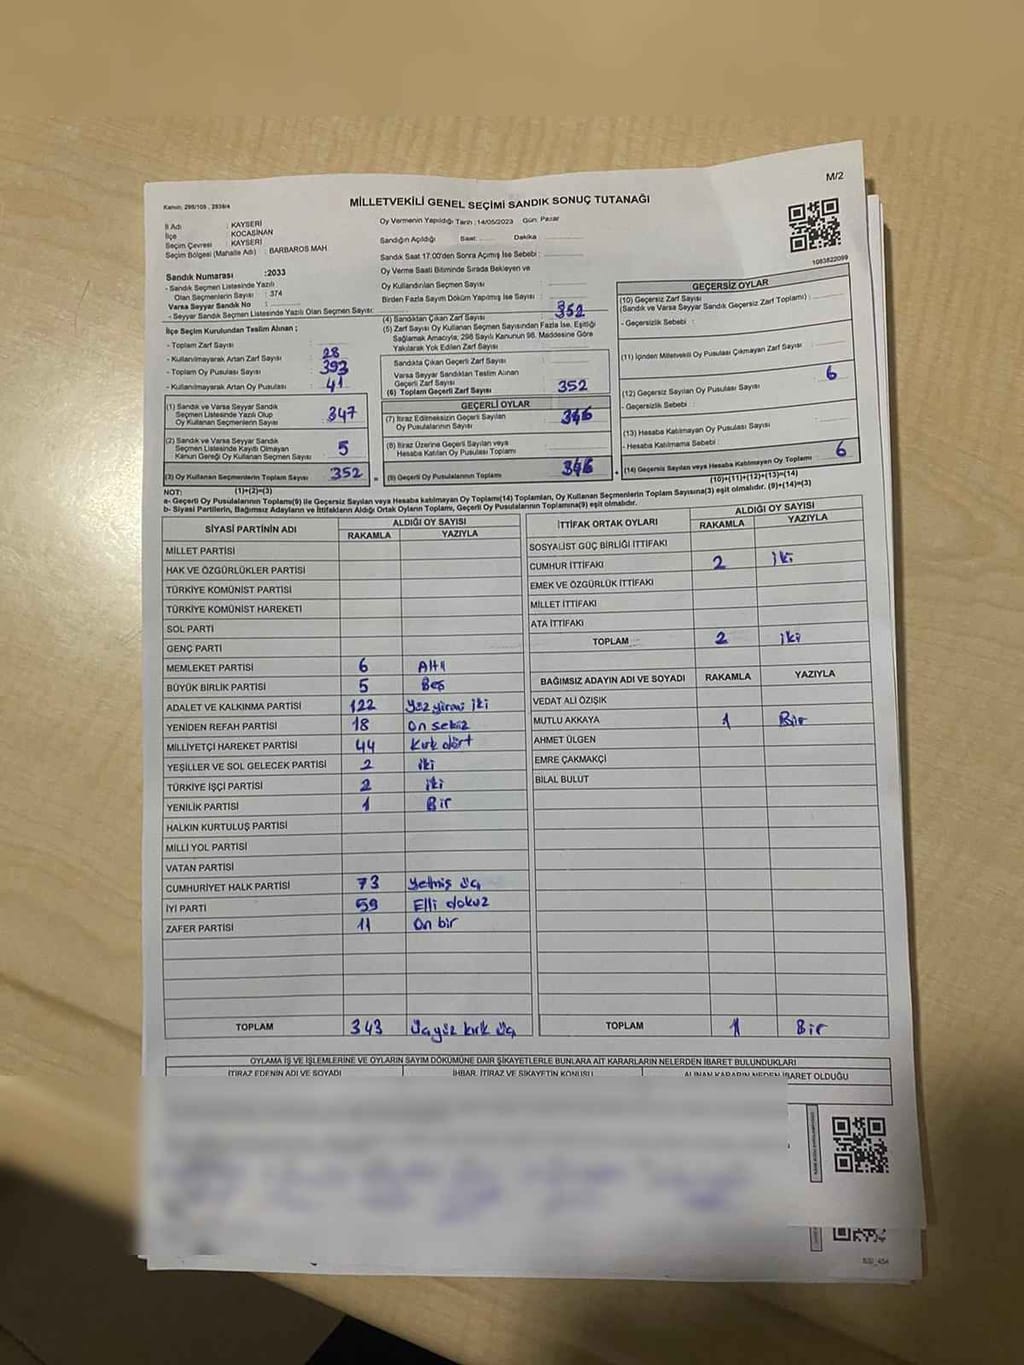 M/2
Kanun: 298/105 , 2839/4
MİLLETVEKİLİ GENEL SEÇİMİ SANDIK SONUÇ TUTANAĞI
İl Adı : KAYSERİ
İlçe : KOCASİNAN
Seçim Çevresi : KAYSERİ
Seçim Bölgesi (Mahalle Adı) : BARBAROS MAH
Sandık Numarası :2033
- Sandık Seçmen Listesinde Yazılı
Olan Seçmenlerin Sayısı : 374
Varsa Seyyar Sandık No :
- Seyyar Sandık Seçmen Listesinde Yazılı Olan Seçmen Sayısı:
İlçe Seçim Kurulundan Teslim Alınan ;
- Toplam Zarf Sayısı :
- Kullanılmayarak Artan Zarf Sayısı : 28
- Toplam Oy Pusulası Sayısı : 393
- Kullanılmayarak Artan Oy Pusulası : 41
(1) Sandık ve Varsa Seyyar Sandık
Seçmen Listesinde Yazılı Olup
Oy Kullanan Seçmenlerin Sayısı : 347
(2) Sandık ve Varsa Seyyar Sandık
Seçmen Listesinde Kayıtlı Olmayan
Kanun Gereği Oy Kullanan Seçmen Sayısı : 5
(3) Oy Kullanan Seçmenlerin Toplam Sayısı : 352
(1)+(2)=(3)
Oy Vermenin Yapıldığı Tarih : 14/05/2023 Gün: Pazar
Sandığın Açıldığı Saat: Dakika
Sandık Saat 17:00'den Sonra Açımış İse Sebebi :
Oy Verme Saati Bitiminde Sırada Bekleyen ve
Oy Kullandırılan Seçmen Sayısı :
Birden Fazla Sayım Döküm Yapılmış İse Sayısı :
(4) Sandıktan Çıkan Zarf Sayısı : 352
(5) Zarf Sayısı Oy Kullanan Seçmen Sayısından Fazla İse, Eşitliği
Sağlamak Amacıyla; 298 Sayılı Kanunun 98. Maddesine Göre
Yakılarak Yok Edilen Zarf Sayısı :
Sandıkta Çıkan Geçerli Zarf Sayısı :
Varsa Seyyar Sandıktan Teslim Alınan
Geçerli Zarf Sayısı :
(6) Toplam Geçerli Zarf Sayısı : 352
GEÇERLİ OYLAR
(7) İtiraz Edilmeksizin Geçerli Sayılan
Oy Pusulalarının Sayısı : 346
(8) İtiraz Üzerine Geçerli Sayılan veya
Hesaba Katılan Oy Pusulası Toplamı :
(9) Geçerli Oy Pusulalarının Toplamı : 346
1083822099
GEÇERSİZ OYLAR
(10) Geçersiz Zarf Sayısı
(Sandık ve Varsa Seyyar Sandık Geçersiz Zarf Toplamı) :
- Geçersizlik Sebebi :
(11) İçinden Milletvekili Oy Pusulası Çıkmayan Zarf Sayısı :
(12) Geçersiz Sayılan Oy Pusulası Sayısı : 6
- Geçersizlik Sebebi :
(13) Hesaba Katılmayan Oy Pusulası Sayısı :
- Hesaba Katılmama Sebebi :
(14) Geçersiz Sayılan veya Hesaba Katılmayan Oy Toplamı : 6
(10)+(11)+(12)+(13)=(14)
NOT:
a- Geçerli Oy Pusulalarının Toplamı(9) ile Geçersiz Sayılan veya Hesaba katılmayan Oy Toplamı(14) Toplamları, Oy Kullanan Seçmenlerin Toplam Sayısına(3) eşit olmalıdır. (9)+(14)=(3)
b- Siyasi Partilerin, Bağımsız Adayların ve İttifakların Aldığı Ortak Oyların Toplamı, Geçerli Oy Pusulalarının Toplamına(9) eşit olmalıdır.
SİYASİ PARTİNİN ADI ALDIĞI OY SAYISI
RAKAMLA YAZIYLA
MİLLET PARTİSİ
HAK VE ÖZGÜRLÜKLER PARTİSİ
TÜRKİYE KOMÜNİST PARTİSİ
TÜRKİYE KOMÜNİST HAREKETİ
SOL PARTİ
GENÇ PARTİ
MEMLEKET PARTİSİ 6 Altı
BÜYÜK BİRLİK PARTİSİ 5 Beş
ADALET VE KALKINMA PARTİSİ 122 Yüz yirmi iki
YENİDEN REFAH PARTİSİ 18 On sekiz
MİLLİYETÇİ HAREKET PARTİSİ 44 Kırk dört
YEŞİLLER VE SOL GELECEK PARTİSİ 2 iki
TÜRKİYE İŞÇİ PARTİSİ 2 iki
YENİLİK PARTİSİ 1 Bir
HALKIN KURTULUŞ PARTİSİ
MİLLİ YOL PARTİSİ
VATAN PARTİSİ
CUMHURİYET HALK PARTİSİ 73 Yetmiş üç
İYİ PARTİ 59 Elli dokuz
ZAFER PARTİSİ 11 On bir
TOPLAM 343 Üçyüz kırk üç
İTTİFAK ORTAK OYLARI ALDIĞI OY SAYISI
RAKAMLA YAZIYLA
SOSYALİST GÜÇ BİRLİĞİ İTTİFAKI
CUMHUR İTTİFAKI 2 iki
EMEK VE ÖZGÜRLÜK İTTİFAKI
MİLLET İTTİFAKI
ATA İTTİFAKI
TOPLAM 2 iki
BAĞIMSIZ ADAYIN ADI VE SOYADI RAKAMLA YAZIYLA
VEDAT ALİ ÖZIŞIK
MUTLU AKKAYA 1 Bir
AHMET ÜLGEN
EMRE ÇAKMAKÇİ
BİLAL BULUT
TOPLAM 1 Bir
OYLAMA İŞ VE İŞLEMLERİNE VE OYLARIN SAYIM DÖKÜMÜNE DAİR ŞİKAYETLERLE BUNLARA AİT KARARLARIN NELERDEN İBARET BULUNDUKLARI
İTİRAZ EDENİN ADI VE SOYADI İHBAR, İTİRAZ VE ŞİKAYETİN KONUSU ALINAN KARARIN NEDEN İBARET OLDUĞU